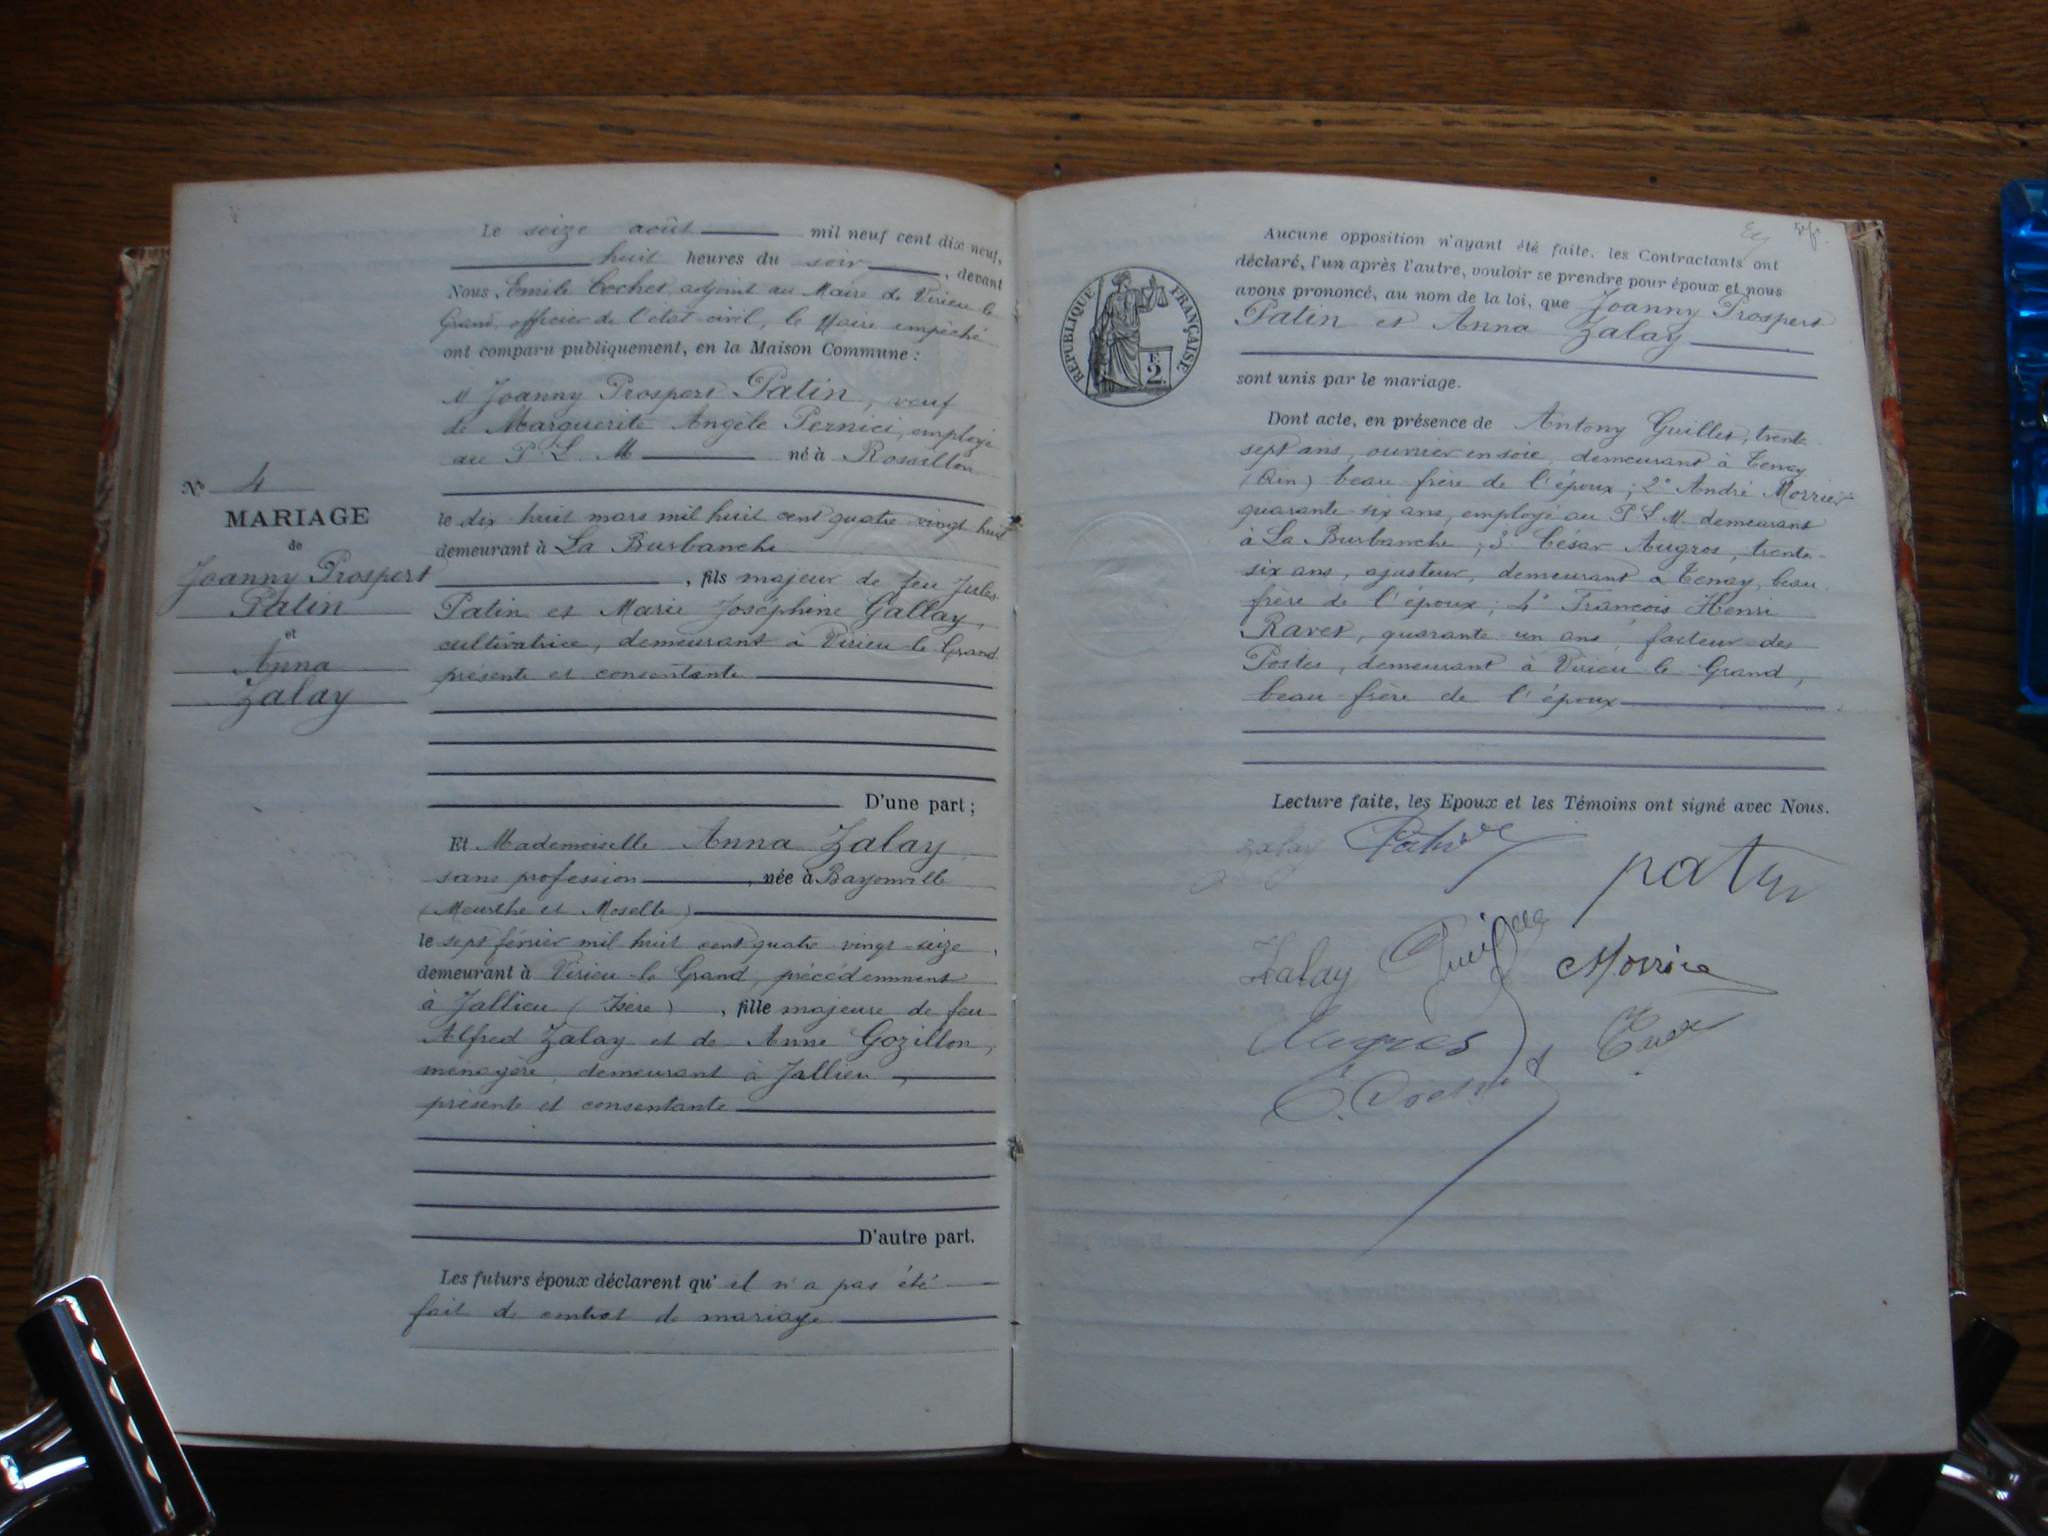 Le seize août mil neuf cent dix neuf,
huit heures du soir, devant
Nous, Emile Cochet, adjoint au Maire de Virieu le
Grand, officier de l'état-civil, le Maire empêché
ont comparu publiquement, en la Maison Commune :
M Joanny Prospert Patin, veuf
de Marguerite Angèle Pernici, employé
au P. L. M né à Rossillon
le dix-huit mars mil huit cent quatre-vingt huit
demeurant à La Burbanche
, fils majeur de feu Jules
Patin et Marie Joséphine Gallay,
cultivatrice, demeurant à Virieu-le-Grand
présente et consentante
D'une part ;
Et Mademoiselle Anna Zalay
sans profession, née à Bayonville
(Meurthe et Moselle)
le sept février mil huit cent quatre-vingt-seize,
demeurant à Virieu-le Grand, précédemment
à Jallieu (Isère), fille majeure de feu
Alfred Zalay et de Anne Gozillon,
ménagère, demeurant à Jallieu,
présente et consentante
D'autre part.
Les futurs époux déclarent qu'il n'a pas été
fait de contrat de mariage
No 4
MARIAGE
de
Joanny Prospert
Patin
et
Anna
Zalay
RÉPUBLIQUE FRANÇAISE
2
Aucune opposition n'ayant été faite, les Contractants ont
déclaré, l'un après l'autre, vouloir se prendre pour époux et nous
avons prononcé, au nom de la loi, que Joanny Prospert
Patin et Anna Zalay
sont unis par le mariage.
Dont acte, en présence de Antony Guillet, trente-
sept ans, ouvrier en soie, demeurant à Tenay
(Ain) beau frère de l'époux ; 2° André Morrier
quarante-six ans, employé au P. L. M. demeurant
à La Burbanche ; 3° César Augros, trente-
six ans, ajusteur, demeurant à Tenay, beau-
frère de l'époux ; 4° François Henri
Ravet, quarante-un ans, facteur des
Postes, demeurant à Virieu le Grand,
beau-frère de l'époux
Lecture faite, les Epoux et les Témoins ont signé avec Nous.
zalay
patin
Zalay
Augros